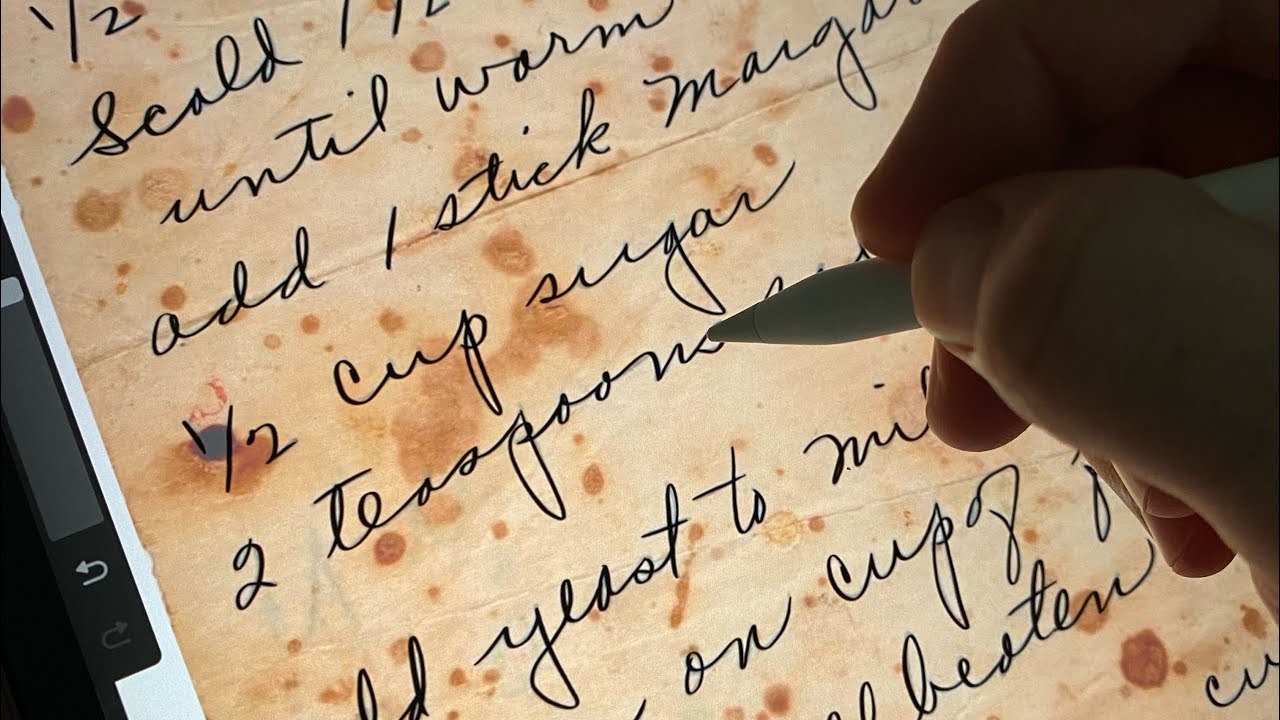 1/2
Scald 1 1/2
until warm
add 1 stick
1/2 cup sugar
2 teaspoons
yeast to
on cup of
beaten